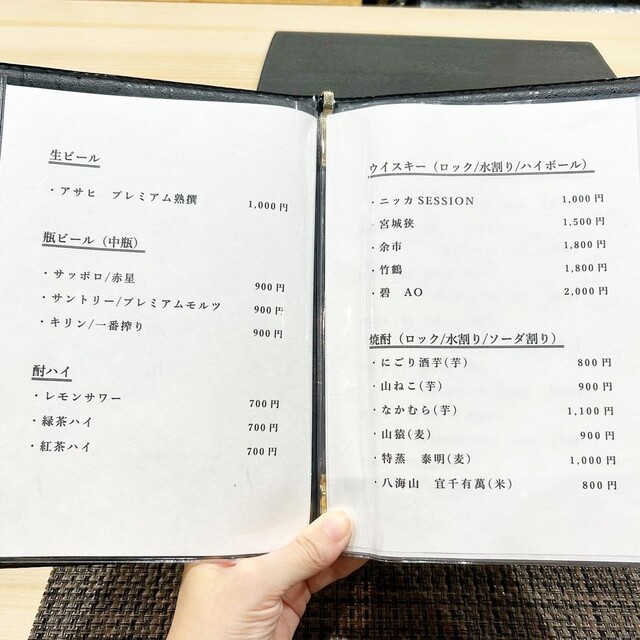 生ビール
・アサヒ プレミアム熟撰 1,000円
瓶ビール（中瓶）
・サッポロ/赤星 900円
・サントリー/プレミアムモルツ 900円
・キリン/一番搾り 900円
酎ハイ
・レモンサワー 700円
・緑茶ハイ 700円
・紅茶ハイ 700円
ウイスキー（ロック/水割り/ハイボール）
・ニッカ SESSION 1,000円
・宮城狭 1,500円
・余市 1,800円
・竹鶴 1,800円
・碧 AO 2,000円
焼酎（ロック/水割り/ソーダ割り）
・にごり酒芋(芋) 800円
・山ねこ(芋) 900円
・なかむら(芋) 1,100円
・山猿(麦) 900円
・特蒸 泰明(麦) 1,000円
・八海山 宜千有萬(米) 800円